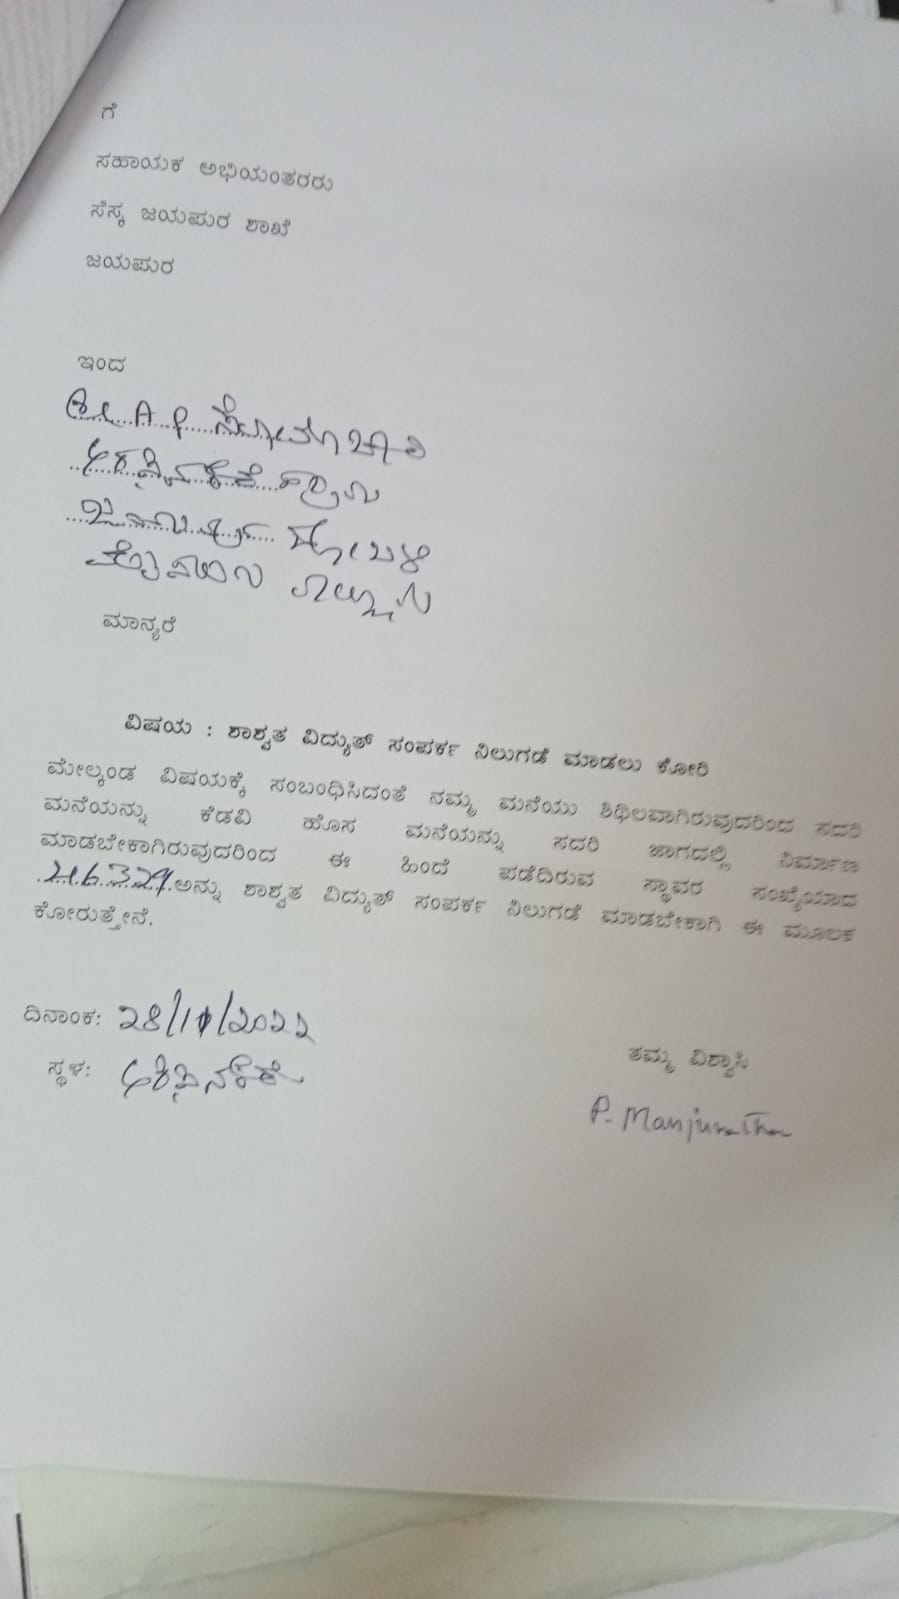 ಗೆ
ಸಹಾಯಕ ಅಭಿಯಂತರರು
ಸೆಸ್ಕ ಜಯಪುರ ಶಾಖೆ
ಜಯಪುರ
ಇಂದ
ಮಾನ್ಯರೆ
ವಿಷಯ : ಶಾಶ್ವತ ವಿದ್ಯುತ್ ಸಂಪರ್ಕ ನಿಲುಗಡೆ ಮಾಡಲು ಕೋರಿ
ಮೇಲ್ಕಂಡ ವಿಷಯಕ್ಕೆ ಸಂಬಂಧಿಸಿದಂತೆ ನಮ್ಮ ಮನೆಯು ಶಿಥಿಲವಾಗಿರುವುದರಿಂದ ಸದರಿ
ಮನೆಯನ್ನು ಕೆಡವಿ ಹೊಸ ಮನೆಯನ್ನು ಸದರಿ ಜಾಗದಲ್ಲಿ ನಿರ್ಮಾಣ
ಮಾಡಬೇಕಾಗಿರುವುದರಿಂದ ಈ ಹಿಂದೆ ಪಡೆದಿರುವ ಸ್ಥಾವರ ಸಂಖ್ಯೆಯಾದ
ಅನ್ನು ಶಾಶ್ವತ ವಿದ್ಯುತ್ ಸಂಪರ್ಕ ನಿಲುಗಡೆ ಮಾಡಬೇಕಾಗಿ ಈ ಮೂಲಕ
ಕೋರುತ್ತೇನೆ.
ದಿನಾಂಕ: 28/11/2022
ಸ್ಥಳ:
ತಮ್ಮ ವಿಶ್ವಾಸಿ
P. Manjunatha